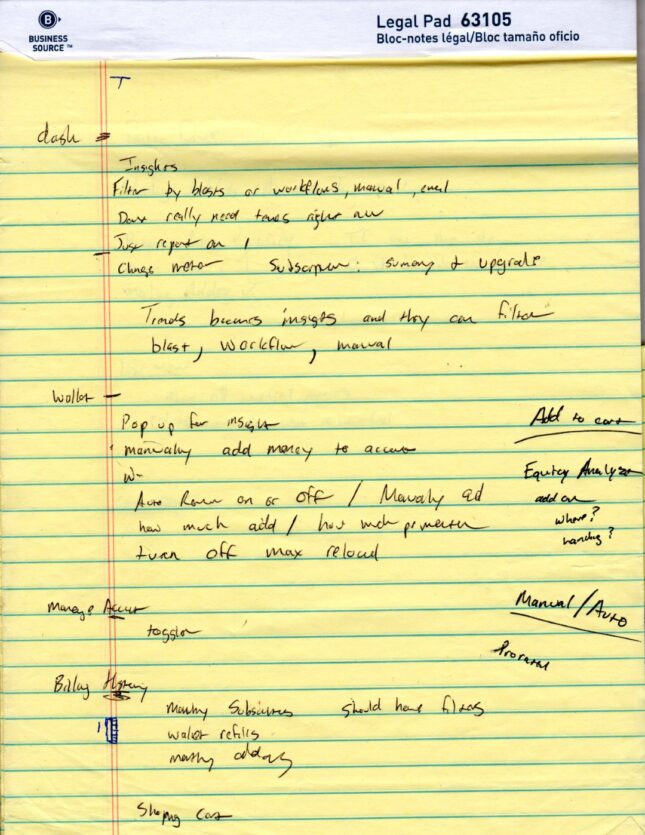 BUSINESS
SOURCE ™
Legal Pad 63105
Bloc-notes légal/Bloc tamaño oficio
T
dash =
Insights
Filter by blasts or workflows, manual, email
Dont really need trends right now
Just report on
Change Subscription: summary & upgrade
Trends becomes insights and they can filter
blast, workflow, manual
wallet –
Pop up for insight
manually add money to account
Add to cart
Equity Analyzer
add on
where?
Auto on or off / Manually ad
how much add / how much per month
turn off max reload
Manage Account
toggle
Manual/Auto
Prorated
Billing History
Monthly Subscriptions should have filters
wallet refills
monthly
Shoping Cart